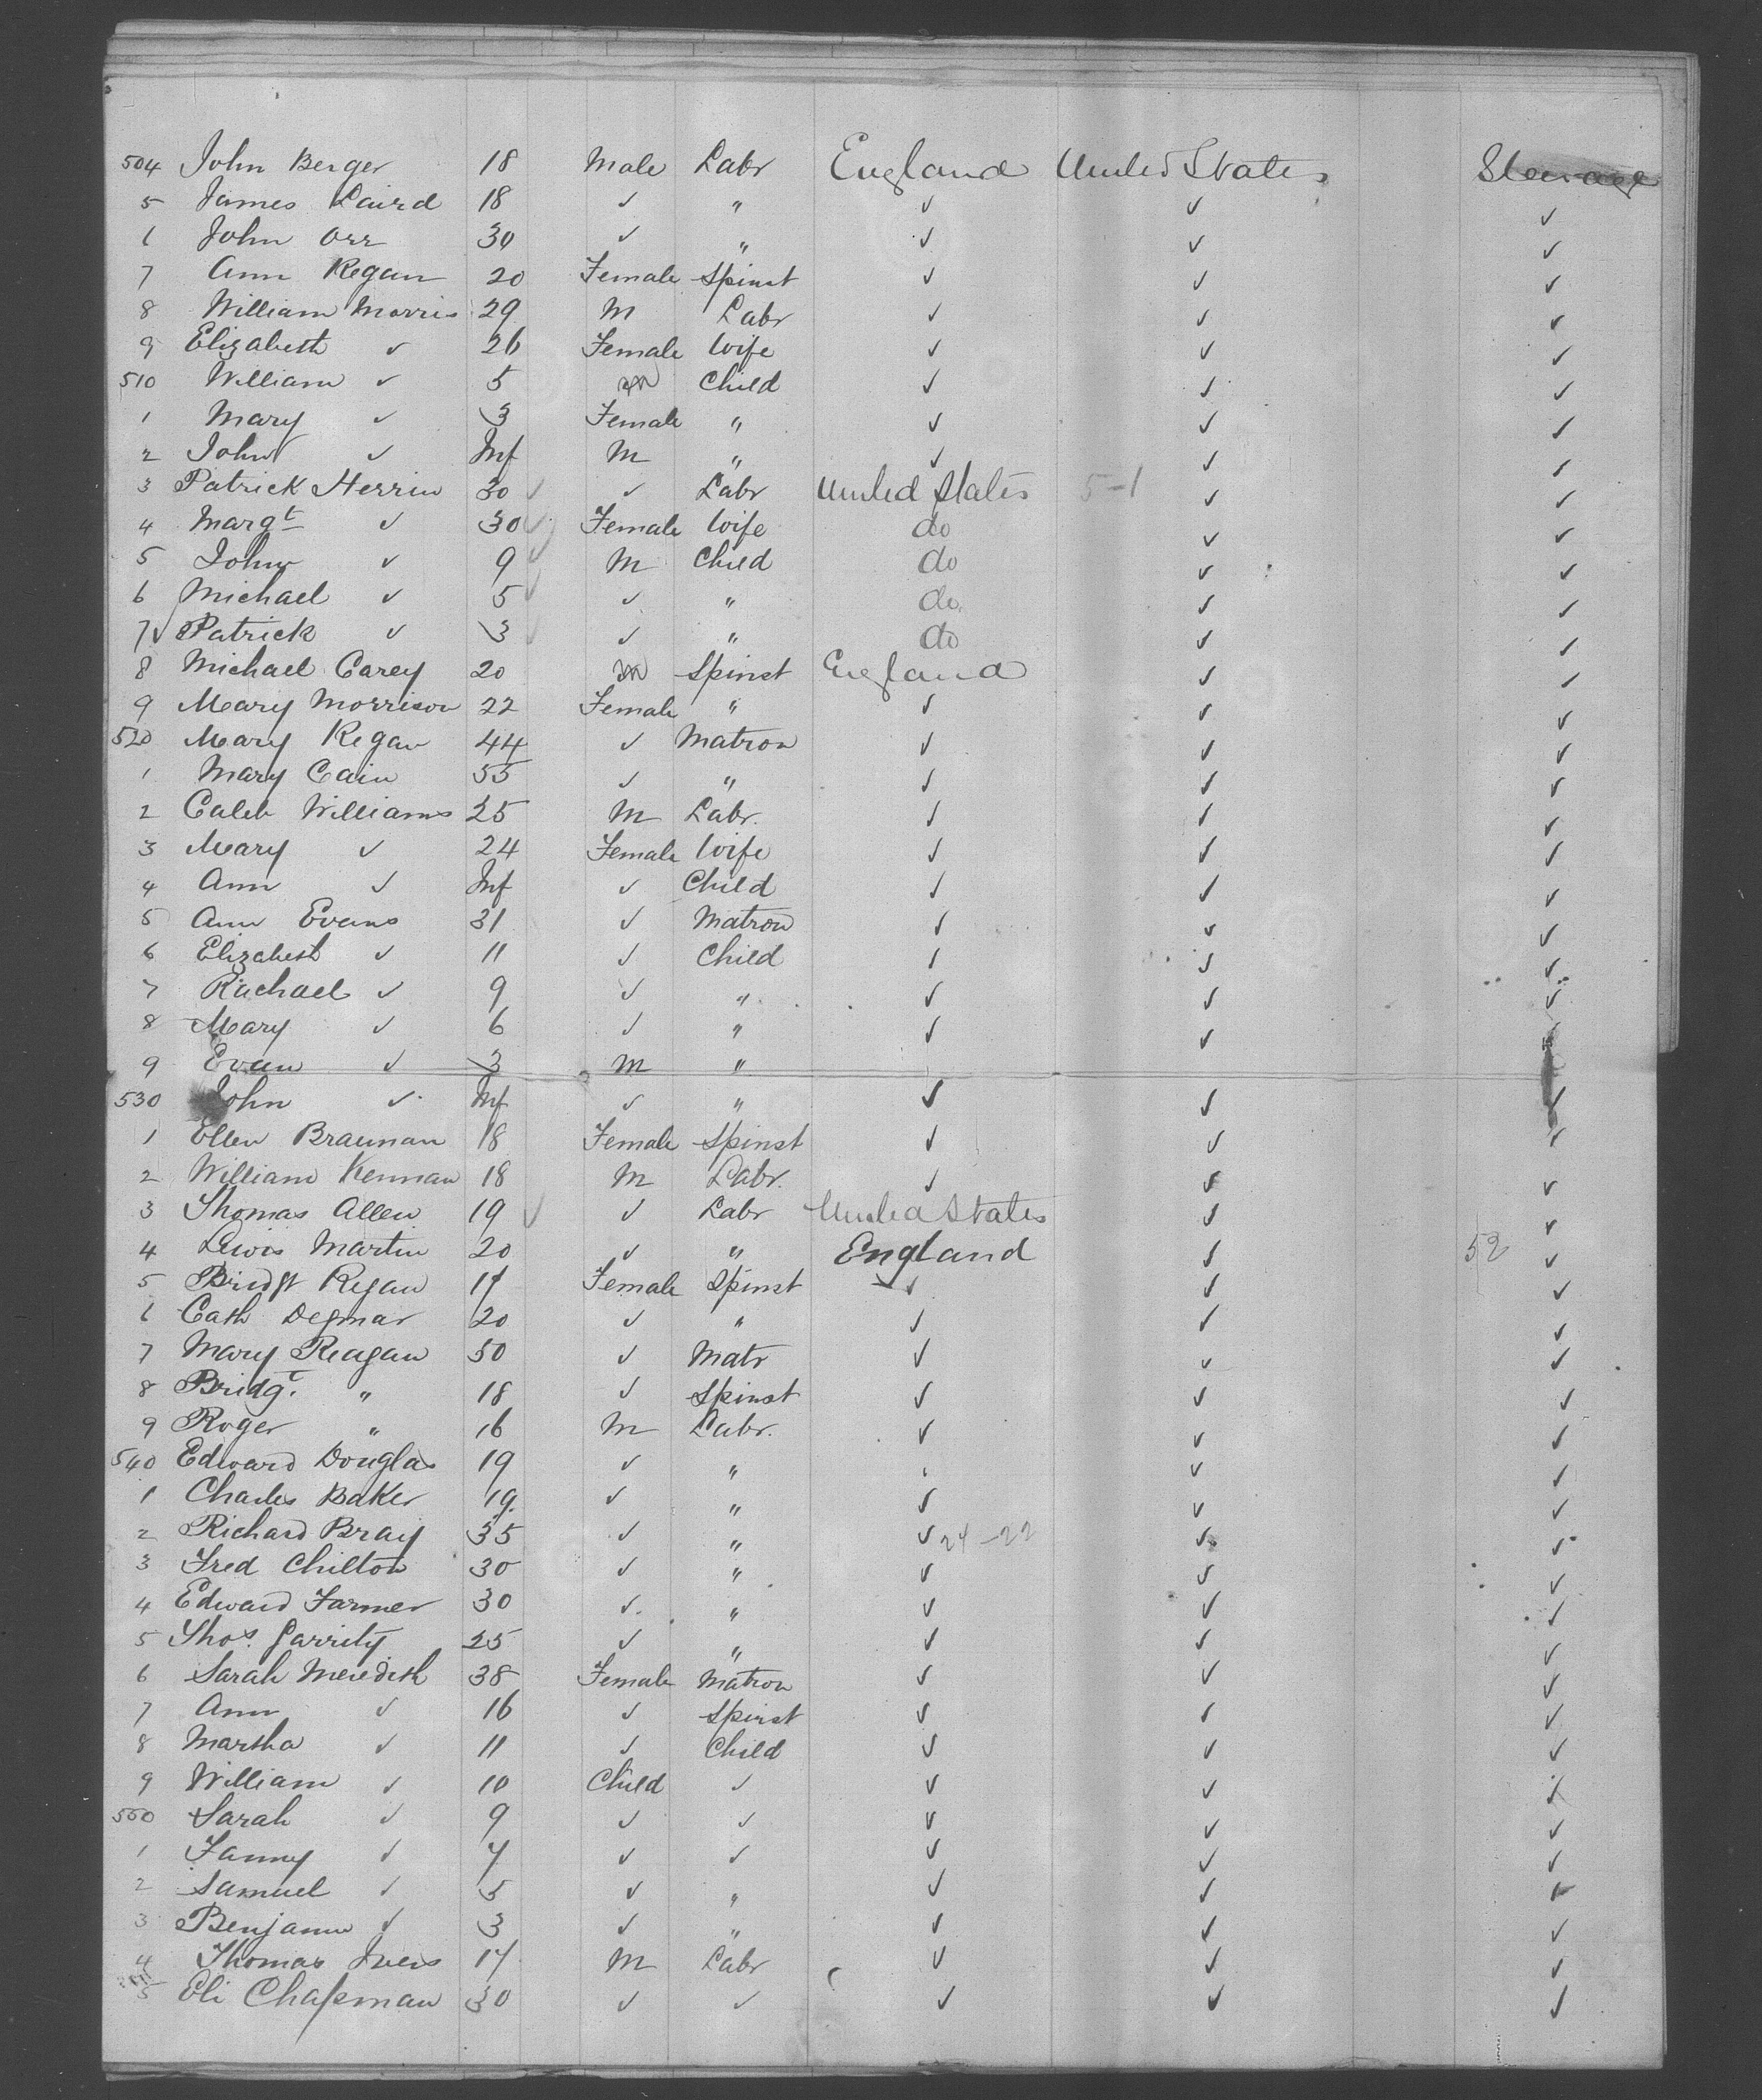 504 John Berger 18 Male Labr England United States Steerage
5 James Laird 18 ✓ " ✓ ✓ ✓
6 John Orr 30 ✓ " ✓ ✓ ✓
7 Ann Regan 20 Female Spinst ✓ ✓ ✓
8 William Morris 29 M Labr ✓ ✓ ✓
9 Elizabeth ✓ 26 Female Wife ✓ ✓ ✓
510 William ✓ 5 M Child ✓ ✓ ✓
1 Mary ✓ 3 Female " ✓ ✓ ✓
2 John ✓ Inf M " ✓ ✓ ✓
3 Patrick Herrin 30 ✓ ✓ Labr United States 5-1 ✓ ✓
4 Margt ✓ 30 ✓ Female Wife do ✓ ✓
5 John ✓ 9 ✓ M Child do ✓ ✓
6 Michael ✓ 5 ✓ ✓ " do ✓ ✓
7 ✓ Patrick ✓ 3 ✓ ✓ " do ✓ ✓
8 Michael Carey 20 M Spinst England ✓ ✓
9 Mary Morrison 22 Female " ✓ ✓ ✓
520 Mary Regan 44 ✓ Matron ✓ ✓ ✓
1 Mary Cain 55 ✓ " ✓ ✓ ✓
2 Caleb Williams 25 M Labr. ✓ ✓ ✓
3 Mary ✓ 24 Female Wife ✓ ✓ ✓
4 Ann ✓ Inf ✓ Child ✓ ✓ ✓
5 Ann Evans 31 ✓ Matron ✓ ✓ ✓
6 Elizabeth ✓ 11 ✓ Child ✓ ✓ ✓
7 Rachael ✓ 9 ✓ " ✓ ✓ ✓
8 Mary ✓ 6 ✓ " ✓ ✓ ✓
9 Evan ✓ 3 M "
530 John ✓ Inf ✓ " ✓ ✓ ✓
1 Ellen Braunan 18 Female Spinst ✓ ✓ ✓
2 William Kennan 18 M Labr. ✓ ✓ ✓
3 Thomas Allen 19 ✓ ✓ Labr United States ✓ ✓
4 Lewis Martin 20 ✓ " England ✓ 52 ✓
5 Bridgt Regan 17 Female Spinst ✓ ✓ ✓
6 Cath Degnar 20 ✓ " ✓ ✓ ✓
7 Mary Reagan 50 ✓ Matr ✓ ✓ ✓
8 Bridgt. " 18 ✓ Spinst ✓ ✓ ✓
9 Roger " 16 M Labr. ✓ ✓ ✓
540 Edward Douglas 19 ✓ " ✓ ✓
1 Charles Baker 19. ✓ " ✓ ✓ ✓
2 Richard Bray 35 ✓ " ✓ 24-22 ✓ ✓
3 Fred Chilton 30 ✓ " ✓ ✓ ✓
4 Edward Farmer 30 ✓ " ✓ ✓ ✓
5 Thos. Garrity 25 ✓ " ✓ ✓ ✓
6 Sarah Meredith 38 Female Matron ✓ ✓ ✓
7 Ann ✓ 16 ✓ Spinst ✓ ✓ ✓
8 Martha ✓ 11 ✓ Child ✓ ✓ ✓
9 William ✓ 10 Child ✓ ✓ ✓ ✓
550 Sarah ✓ 9 ✓ ✓ ✓ ✓ ✓
1 Fanny ✓ 7 ✓ ✓ ✓ ✓ ✓
2 Samuel ✓ 5 ✓ " ✓ ✓ ✓
3 Benjamin ✓ 3 ✓ " ✓ ✓ ✓
4 Thomas 17 M Labr ✓ ✓ ✓
5 Eli Chapman 30 ✓ ✓ ✓ ✓ ✓